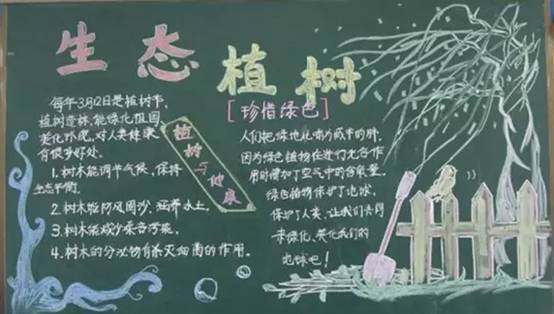 生态植树
每年3月12日是植树节,
植树造林,能绿化祖国
美化环境,对人类健康
有很多好处。
1.树木能调节气候,保持
生态平衡
2.树木能防风固沙,涵养水土。
3.树木能减少噪音污染。
4.树木的分泌物有杀灭细菌的作用。
植树与健康
[珍惜绿色]
人们把绿地比喻为城市的肺,
因为绿色植物在进行光合作
用时增加了空气中的含氧量。
绿色植物保护了地球,
保护了人类,让我们共同
来绿化、美化我们的
地球吧!